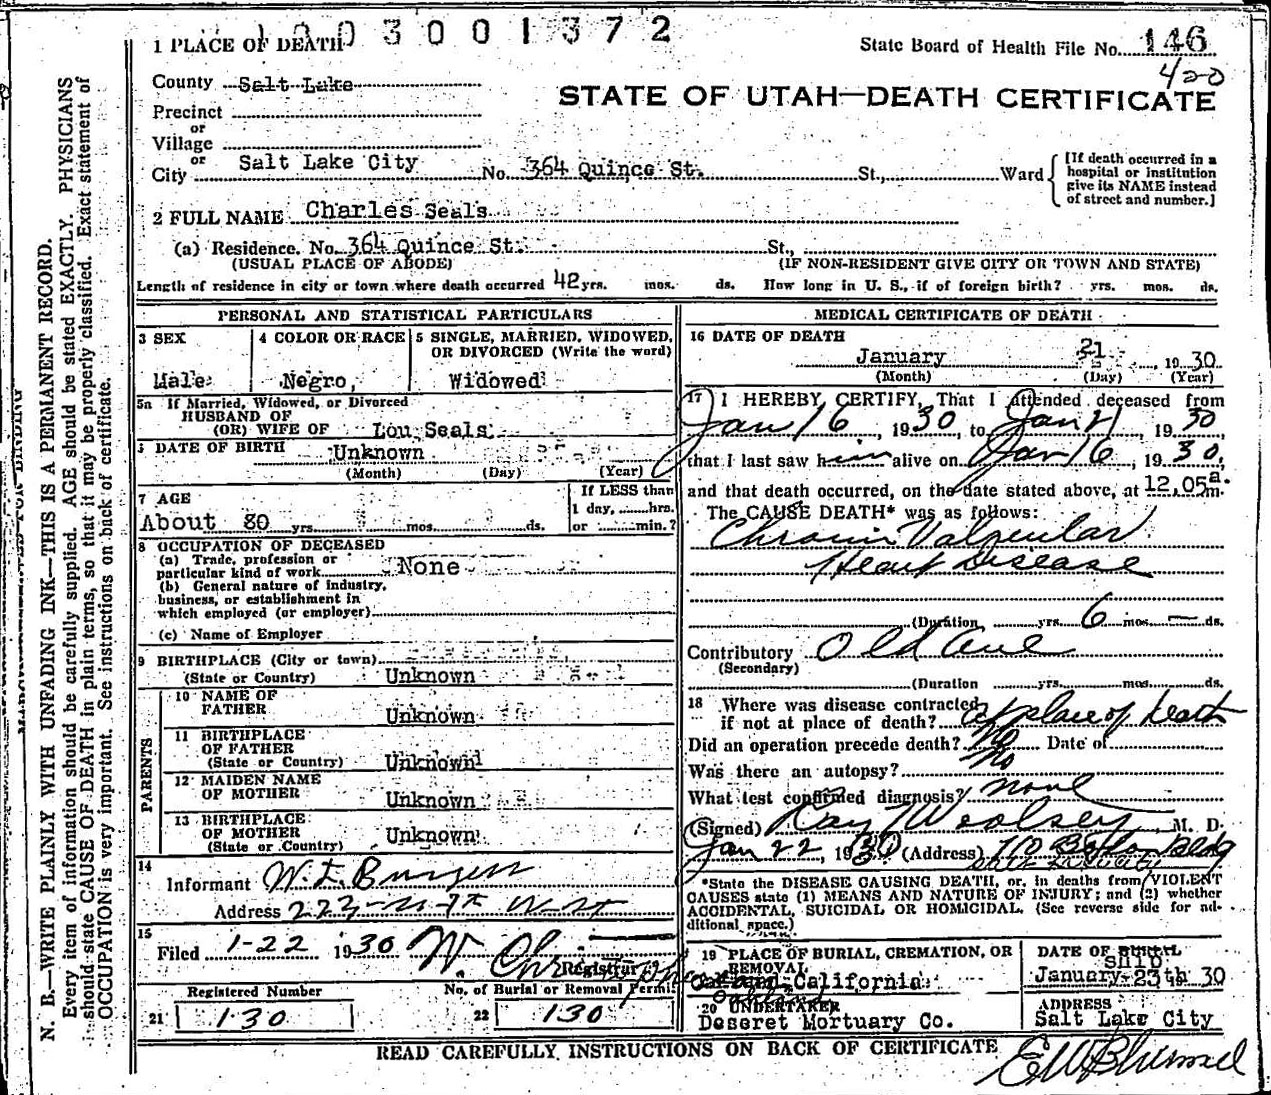 1003001372
1 PLACE OF DEATH
State Board of Health File No. 146
420
County Salt Lake
STATE OF UTAH—DEATH CERTIFICATE
Precinct
or
Village
or
City Salt Lake City No. 364 Quince St. St., Ward
[If death occurred in a
hospital or institution
give its NAME instead
of street and number.]
2 FULL NAME Charles Seals
(a) Residence. No. 364 Quince St. St.,
(USUAL PLACE OF ABODE) (IF NON-RESIDENT GIVE CITY OR TOWN AND STATE)
Length of residence in city or town where death occurred 42 yrs. mos. ds. How long in U. S., if of foreign birth? yrs. mos. ds.
PERSONAL AND STATISTICAL PARTICULARS
3 SEX
Male
4 COLOR OR RACE
Negro,
5 SINGLE, MARRIED, WIDOWED,
OR DIVORCED (Write the word)
Widowed
5a If Married, Widowed, or Divorced
HUSBAND OF
(OR) WIFE OF Lou Seals
DATE OF BIRTH Unknown
(Month) (Day) (Year)
7 AGE
About 80 yrs. mos. ds.
If LESS than
1 day, hrs.
or min.?
8 OCCUPATION OF DECEASED
(a) Trade, profession or
particular kind of work None
(b) General nature of industry,
business, or establishment in
which employed (or employer)
(c) Name of Employer
9 BIRTHPLACE (City or town)
(State or Country) Unknown
PARENTS
10 NAME OF
FATHER Unknown
11 BIRTHPLACE
OF FATHER
(State or Country) Unknown
12 MAIDEN NAME
OF MOTHER Unknown
13 BIRTHPLACE
OF MOTHER
(State or Country) Unknown
14
Informant W. E. Burgess
Address
15
Filed 1-22 1930 W.
Registrar
Registered Number
21 130
No. of Burial or Removal Permit
22 130
MEDICAL CERTIFICATE OF DEATH
16 DATE OF DEATH
January 21, 1930
(Month) (Day) (Year)
17 I HEREBY CERTIFY, That I attended deceased from
Jan 16, 1930, to Jan 21, 1930
that I last saw him alive on Jan 16, 1930,
and that death occurred, on the date stated above, at 12.05 a.m.
The CAUSE DEATH* was as follows:
Chronic Valvular
Heart Disease
(Duration yrs. 6 mos. — ds.
Contributory Old age
(Secondary)
(Duration yrs. mos. ds.
18 Where was disease contracted
if not at place of death? at place of death
Did an operation precede death? No Date of
Was there an autopsy? No
What test confirmed diagnosis? none
(Signed) Ray Woolsey M. D.
Jan 22, 1930 (Address) Bldg
*State the DISEASE CAUSING DEATH, or, in deaths from VIOLENT
CAUSES state (1) MEANS AND NATURE OF INJURY; and (2) whether
ACCIDENTAL, SUICIDAL OR HOMICIDAL. (See reverse side for ad-
ditional space.)
19 PLACE OF BURIAL, CREMATION, OR
REMOVAL
Oakland, California
Oakland
DATE OF BURIAL
Ship
January 23th 30
20 UNDERTAKER
Deseret Mortuary Co.
ADDRESS
Salt Lake City
READ CAREFULLY INSTRUCTIONS ON BACK OF CERTIFICATE
N. B.—WRITE PLAINLY WITH UNFADING INK—THIS IS A PERMANENT RECORD.
Every item of information should be carefully supplied. AGE should be stated EXACTLY. PHYSICIANS
should state CAUSE OF DEATH in plain terms, so that it may be properly classified. Exact statement of
OCCUPATION is very important. See instructions on back of certificate.